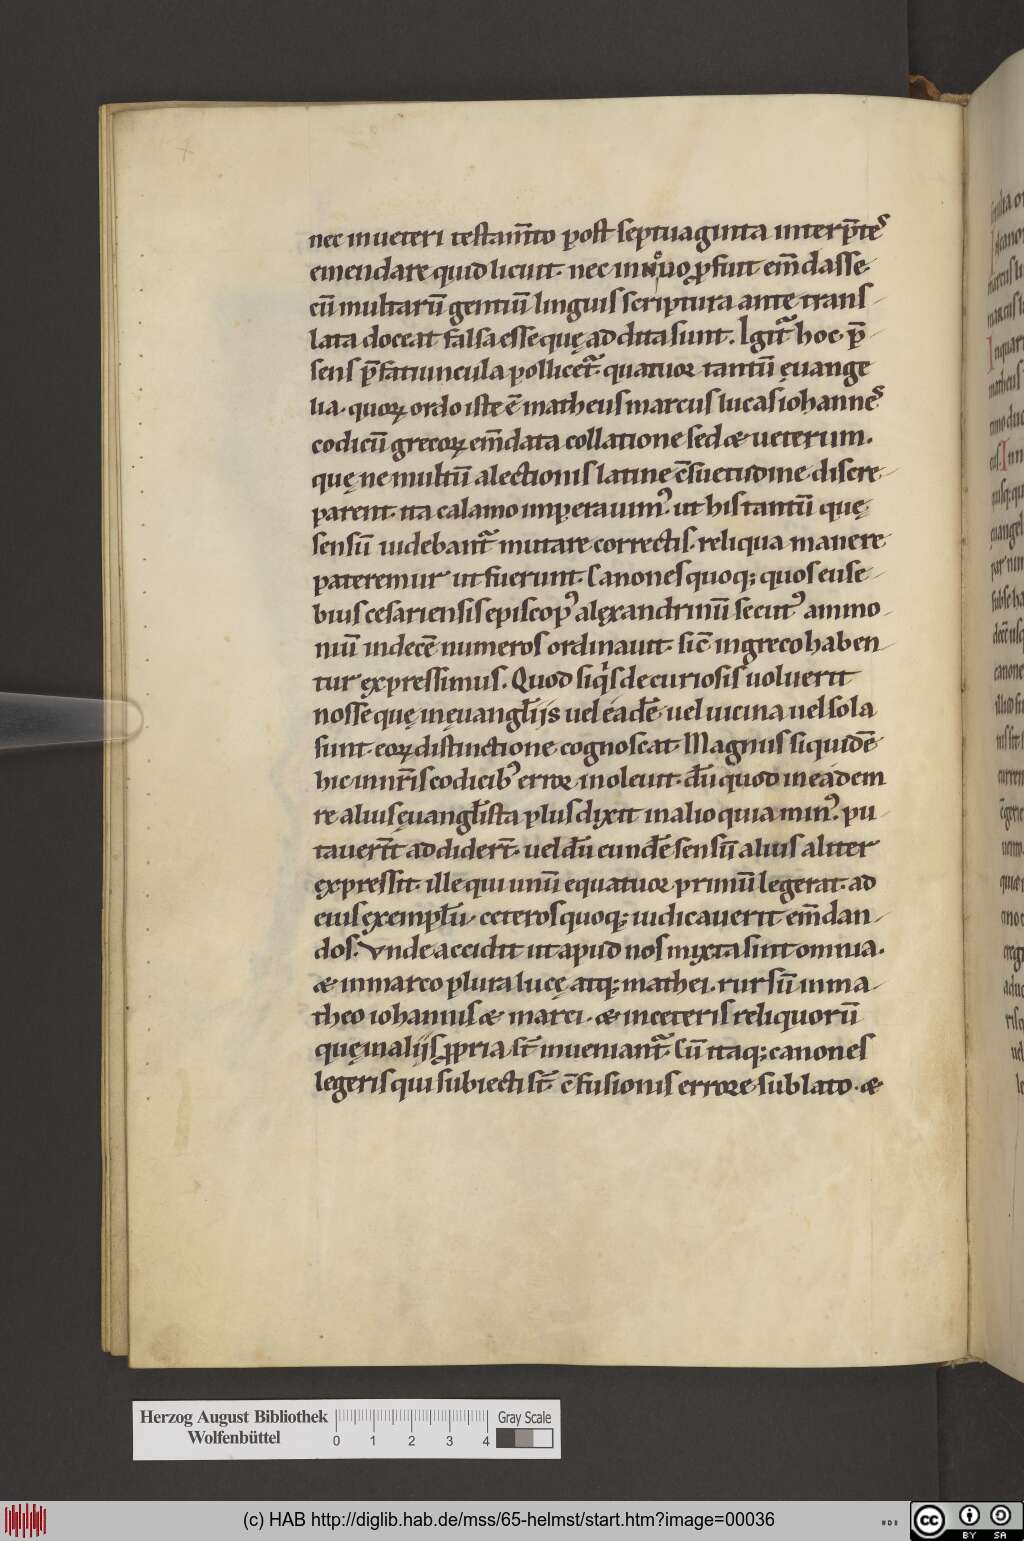 nec in ueteri testam̅to post septuaginta interp̅tes
emendare quid licuit. nec in nouo ꝓfuit em̅dasse.
cū multarū gentiū linguis scriptura ante trans-
lata doceat falsa esse quę addita sunt. Igitᷓ hoc p̅-
sens p̅fatiuncula pollicetᷓ. quatuor tantū ęuange
lia. quoꝝ ordo iste ē matheus marcus lucas iohannes
codicū grecoꝝ em̅data collatione sed & ueterum.
quę ne multū a lectionis latine c̅suetudine discre-
parent. ita calamo imperauimꝰ. ut his tantū quę
sensū uidebantᷓ mutare correctis. reliqua manere
pateremur ut fuerunt. Canones quoq; quos euse-
bius cesariensis episcopꝰ alęxandrinū secutꝰ ammo-
niū in decē numeros ordinauit. sic̅ in greco haben
tur ęxpressimus. Quod siqͥs de curiosis uoluerit
nosse quę in ęuangl̅ijs uel eadē. uel uicina uel sola
sunt. eoꝝ distinctione cognoscat. Magnus siquidē
hic in nr̅is codicibꝰ error inoleuit. dū quod in eadem
re alius ęuangl̅ista plus dixit in alio quia minꝰ. pu
tauer̅t addider̅t. uel dū eundē sensū alius aliter
ęxpressit. ille qui unū e quatuor primū legerat. ad
eius ęxempl̅u. ceteros quoq; iudicauerit em̅dan-
dos. Vnde accidit ut apud nos mixta sint omnia.
& in marco plura lucę atq; mathei. rursū in ma-
theo iohannis & marci. & in ceteris reliquorū
quę in alijs ꝓpria st̅ inueniantᷓ. Cū itaq; canones
legeris qui subiecti st̅ c̅fusionis errore sublato. &
Herzog August Bibliothek
Wolfenbüttel
0 1 2 3 4
Gray Scale
(c) HAB http://diglib.hab.de/mss/65-helmst/start.htm?image=00036
cc BY SA